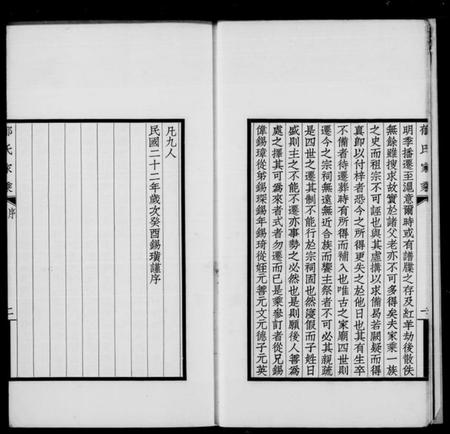 明季播遷至滬意爾時或有譜牒之存及紅羊劫後散佚
無餘雖搜求故實於諸父老亦不可多得矣夫家乘一族
之史而祖宗不可誣也與其虛搆以求備易若闕疑而得
真即以付梓者恐今之所得更失之於他日也其有生卒
不備者待遷葬時有所得而補入也唯古之家廟四世則
遷今之宗祠無遠無近合族而饗主祭者不可必其親疏
是四世之遷其制不能行於宗祠固也然慶假而子姓日
盛則主之不能不遷亦事勢之必然也是則願後人善為
處之擇其可為來者式者勿遷而已是乘參訂者從兄錫
偉錫璋從弟錫琛錫年錫琦從姪元善元文元德子元英
凡九人
民國二十二年歲次癸酉錫璜謹序
氏家乘
序
二
氏家乘